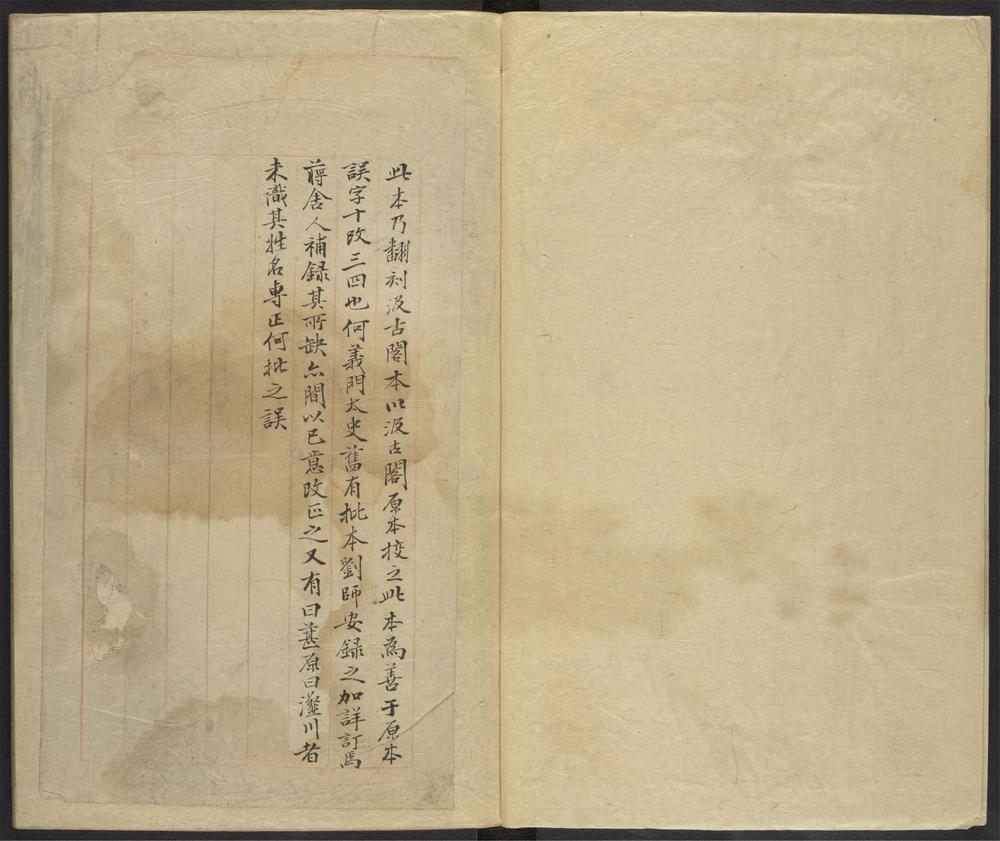 此本乃翻刻汲古閣本以汲古閣原本挍之此本為善于原本
誤字十改三四也何義門太史舊有批本劉師安錄之加詳訂焉
蔣舍人補錄其所缺亦間以己意改正之又有曰葚原曰灘川者
未識其姓名專正何批之誤